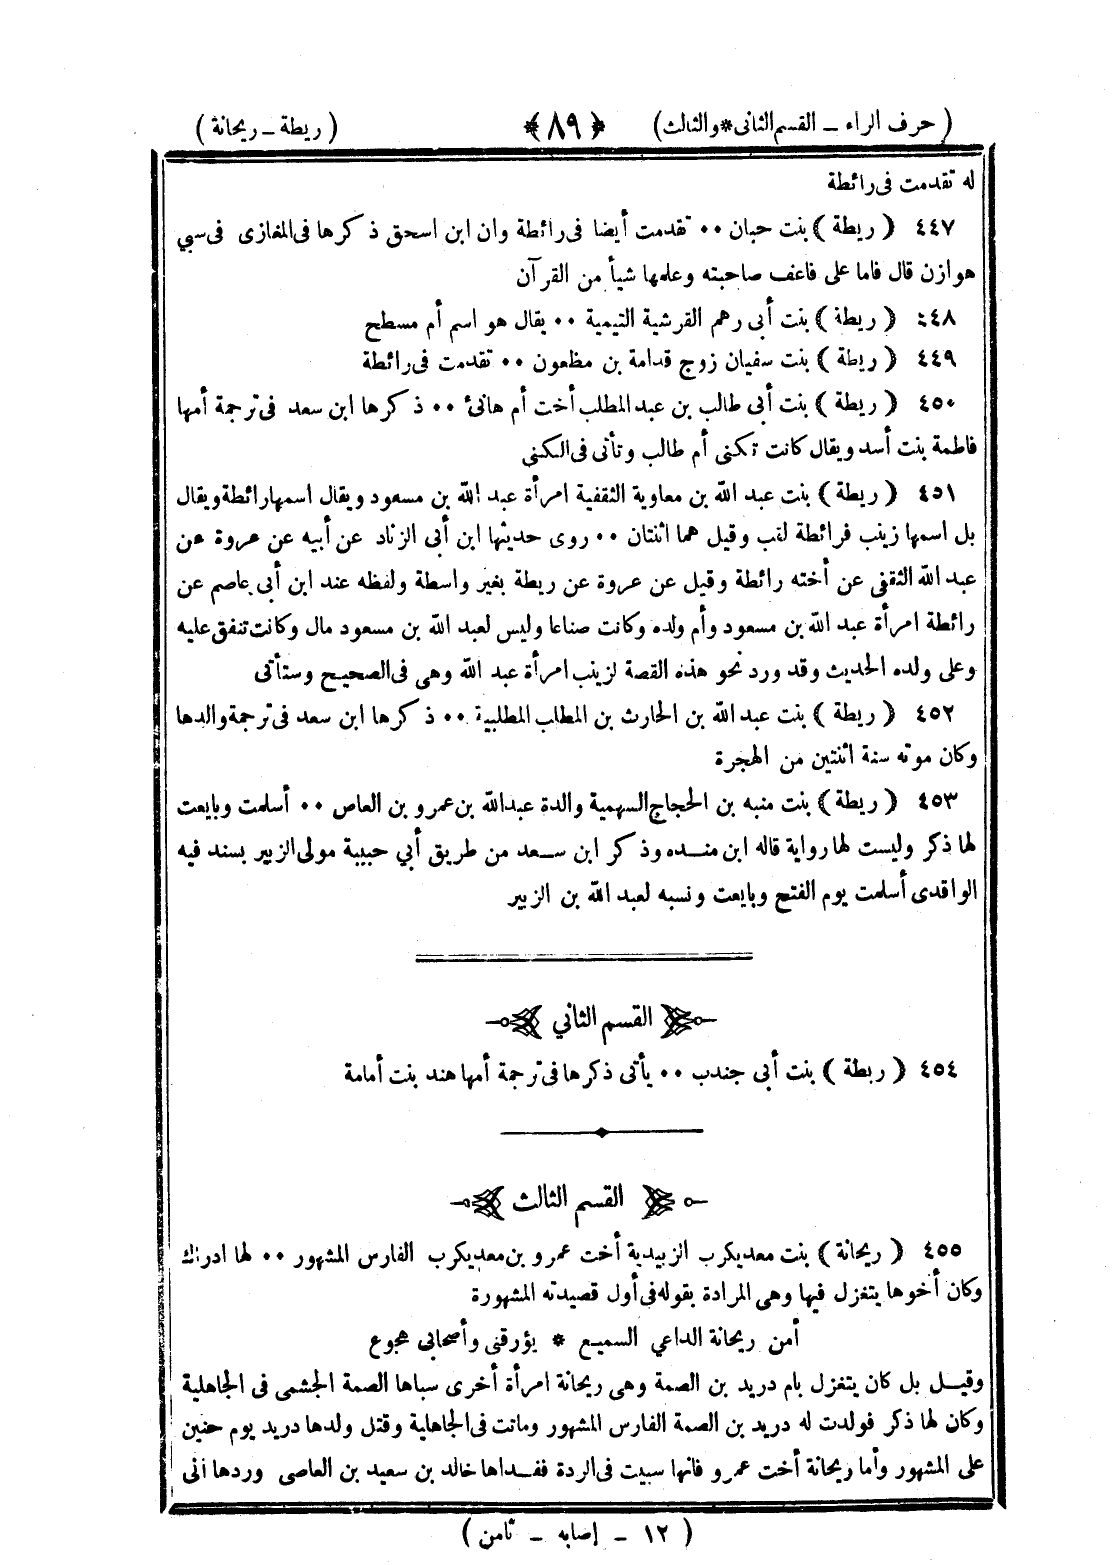 ( حرف الراء – القسم الثانى*والثالث) ﴿ ٨٩ ﴾ ( ريطة – ريحانة )
له تقدمت فى رائطة
٤٤٧ ( ريطة ) بنت حبان ٠٠ تقدمت أيضا فى رائطة وان ابن اسحق ذكرها فى المغازى فى سبي
هوازن قال فاما على فاعف صاحبته وعلمها شيأ من القرآن
٤٤٨ ( ريطة ) بنت أبى رهم القرشية التيمية ٠٠ يقال هو اسم أم مسطح
٤٤٩ ( ريطة ) بنت سفيان زوج قدامة بن مظعون ٠٠ تقدمت فى رائطة
٤٥٠ ( ريطة ) بنت أبى طالب بن عبد المطلب أخت أم هانئ ٠٠ ذكرها ابن سعد فى ترجمة أمها
فاطمة بنت أسد ويقال كانت تكنى أم طالب وتأتى فى الكنى
٤٥١ ( ريطة ) بنت عبد الله بن معاوية الثقفية امرأة عبد الله بن مسعود ويقال اسمها رائطة ويقال
بل اسمها زينب فرائطة لقب وقيل هما اثنتان ٠٠ روى حديثها ابن أبى الزناد عن أبيه عن عروة عن
عبد الله الثقفى عن أخته رائطة وقيل عن عروة عن ريطة بغير واسطة ولفظه عند ابن أبى عاصم عن
رائطة امرأة عبد الله بن مسعود وأم ولده وكانت صناعا وليس لعبد الله بن مسعود مال وكانت تنفق عليه
وعلى ولده الحديث وقد ورد نحو هذه القصة لزينب امرأة عبد الله وهى فى الصحيح وستأتى
٤٥٢ ( ريطة ) بنت عبد الله بن الحارث بن المطلب المطلبية ٠٠ ذكرها ابن سعد فى ترجمة والدها
وكان موته سنة اثنتين من الهجرة
٤٥٣ ( ريطة ) بنت منبه بن الحجاج السهمية والدة عبدالله بن عمرو بن العاص ٠٠ أسلمت وبايعت
لها ذكر وليست لها رواية قاله ابن منده وذكر ابن سعد من طريق أبي حبيبة مولى الزبير بسند فيه
الواقدى أسلمت يوم الفتح وبايعت ونسبه لعبد الله بن الزبير
القسم الثاني
٤٥٤ ( ريطة ) بنت أبى جندب ٠٠ يأتى ذكرها فى ترجمة أمها هند بنت أمامة
القسم الثالث
٤٥٥ ( ريحانة ) بنت معديكرب الزبيدية أخت عمرو بن معديكرب الفارس المشهور ٠٠ لها ادراك
وكان أخوها يتغزل فيها وهى المرادة بقوله فى أول قصيدته المشهورة
أمن ريحانة الداعي السميع * يؤرقنى وأصحابى هجوع
وقيل بل كان يتغزل بام دريد بن الصمة وهى ريحانة امرأة أخرى سباها الصمة الجشمى فى الجاهلية
وكان لها ذكر فولدت له دريد بن الصمة الفارس المشهور وماتت فى الجاهلية وقتل ولدها دريد يوم حنين
على المشهور وأما ريحانة أخت عمرو فانها سبيت فى الردة ففداها خالد بن سعيد بن العاصى وردها الى
( ١٢ – إصابه – ثامن )